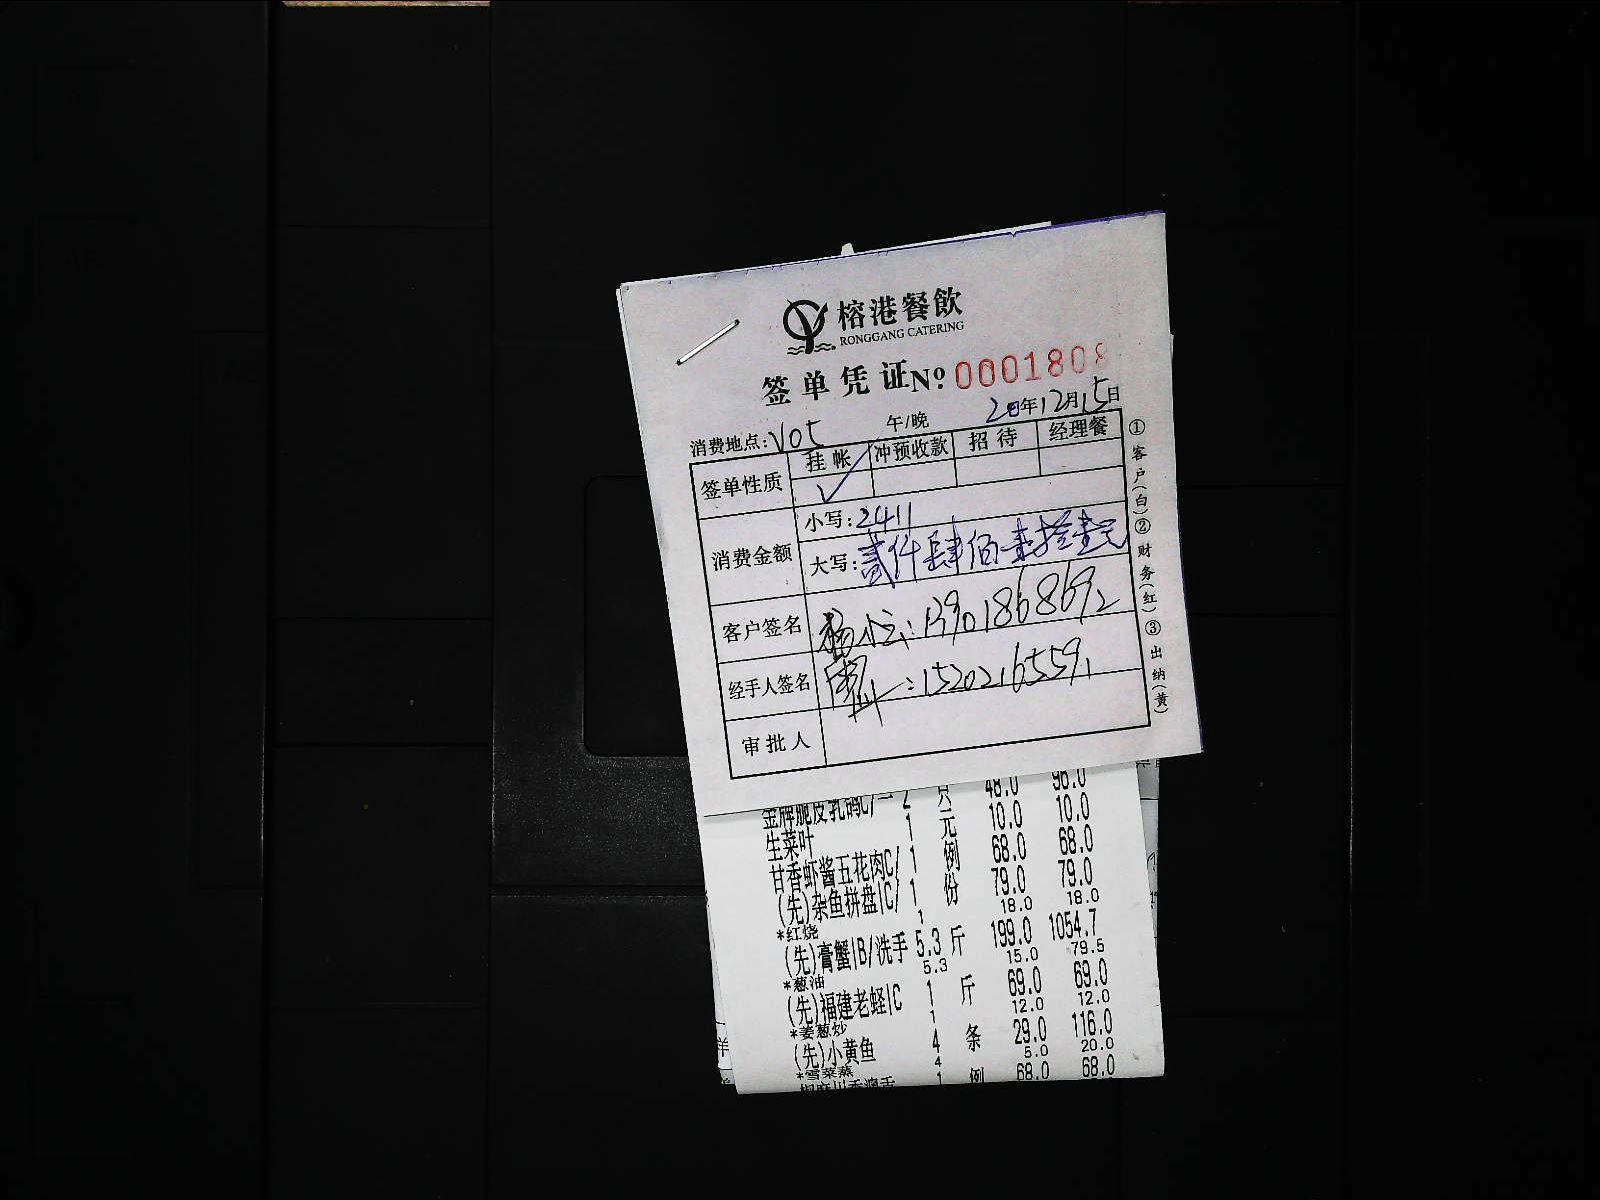 榕港餐飲
RONGGANG CATERING
签单凭证№ 0001808
20年12月15日
消费地点:V05 午/晚
签单性质 挂帐 冲预收款 招待 经理餐
✓
消费金额 小写:2411
大写:贰仟肆佰壹拾壹元
客户签名 13901868692
经手人签名 15202165591
审批人
①客户(白)②财务(红)③出纳(黄)
金牌脆皮乳鸽C/一 2 只 48.0 96.0
生菜叶 1 元 10.0 10.0
甘香虾酱五花肉C/ 1 例 68.0 68.0
(先)杂鱼拼盘|C/ 1 份 79.0 79.0
*红烧 1 18.0 18.0
(先)膏蟹|B/洗手 5.3 斤 199.0 1054.7
*葱油 5.3 15.0 79.5
(先)福建老蛏|C 1 斤 69.0 69.0
*姜葱炒 1 12.0 12.0
(先)小黄鱼 4 条 29.0 116.0
*雪菜蒸 4 5.0 20.0
1 例 68.0 68.0